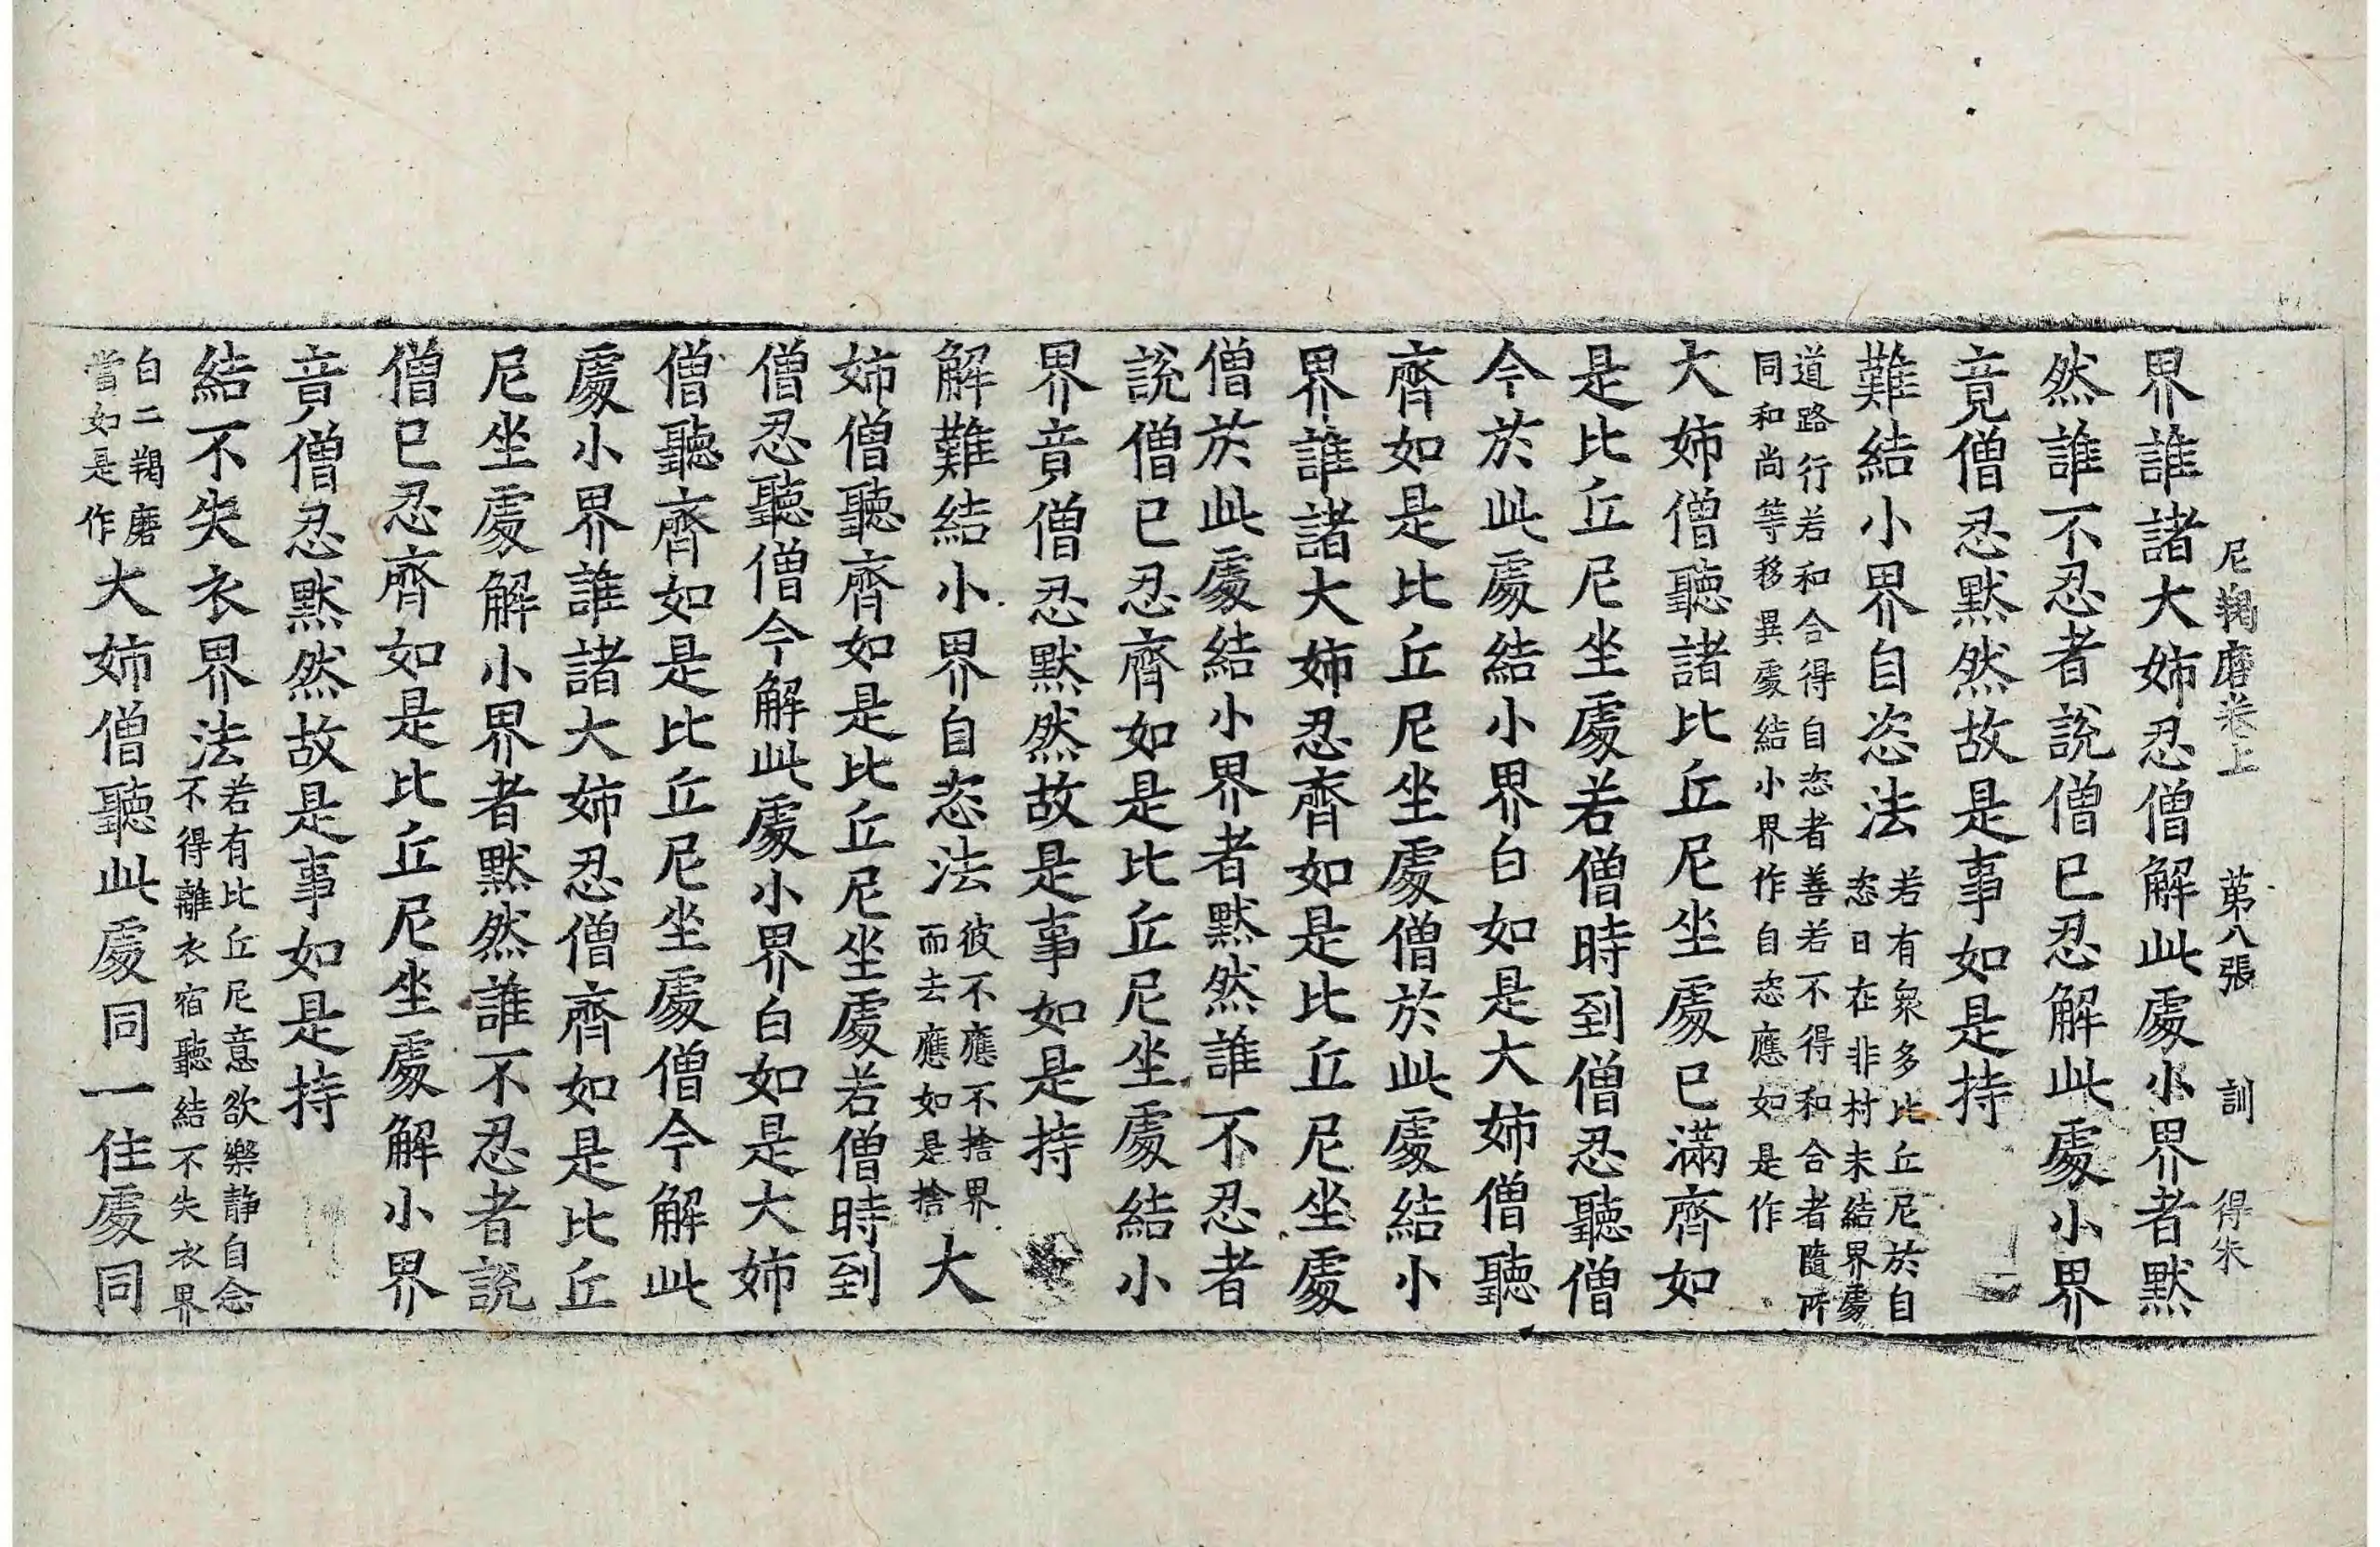 尼羯磨卷上 第八張 訓 得朱
界誰諸大姉忍僧解此處小界者默
然誰不忍者說僧已忍解此處小界
竟僧忍默然故是事如是持
難結小界自恣法若有衆多比丘尼於自
恣日在非村未結界處
道路行若和合得自恣者善若不得和合者隨所
同和尚等移異處結小界作自恣應如是作
大姉僧聽諸比丘尼坐處已滿齊如
是比丘尼坐處若僧時到僧忍聽僧
今於此處結小界白如是大姉僧聽
齊如是比丘尼坐處僧於此處結小
界誰諸大姉忍齊如是比丘尼坐處
僧於此處結小界者默然誰不忍者
說僧已忍齊如是比丘尼坐處結小
界竟僧忍默然故是事如是持
解難結小界自恣法彼不應不捨界
而去應如是捨大
姉僧聽齊如是比丘尼坐處若僧時到
僧忍聽僧今解此處小界白如是大姉
僧聽齊如是比丘尼坐處僧今解此
處小界誰諸大姉忍僧齊如是比丘
尼坐處解小界者默然誰不忍者說
僧已忍齊如是比丘尼坐處解小界
竟僧忍默然故是事如是持
結不失衣界法若有比丘尼意欲樂静自念
不得離衣宿聽結不失衣界
白二羯磨
當如是作大姉僧聽此處同一住處同